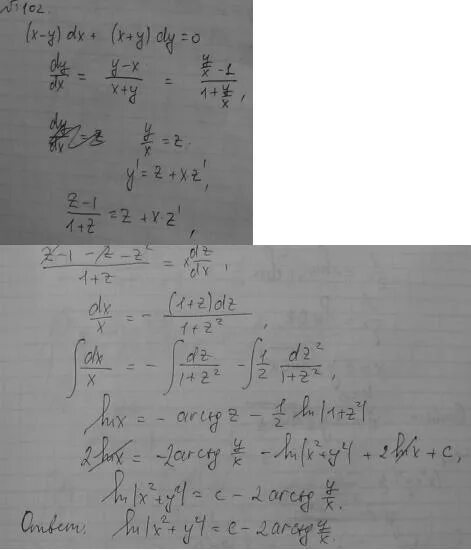 №102.
(x-y)dx + (x+y)dy=0
dy/dx = (y-x)/(x+y) = (y/x - 1)/(1+y/x),
y/x = z.
y' = z + x·z',
(z-1)/(1+z) = z + x·z',
(z-1-z-z²)/(1+z) = x dz/dx,
dx/x = - (1+z)dz/(1+z²),
∫dx/x = - ∫dz/(1+z²) - ∫1/2 dz²/(1+z²),
lnx = - arctg z - 1/2 ln|1+z²|
2lnx = -2arctg y/x - ln|x²+y²| + 2lnx + c,
ln|x²+y²| = c - 2arctg y/x.
Ответ: ln|x²+y²| = c - 2arctg y/x.